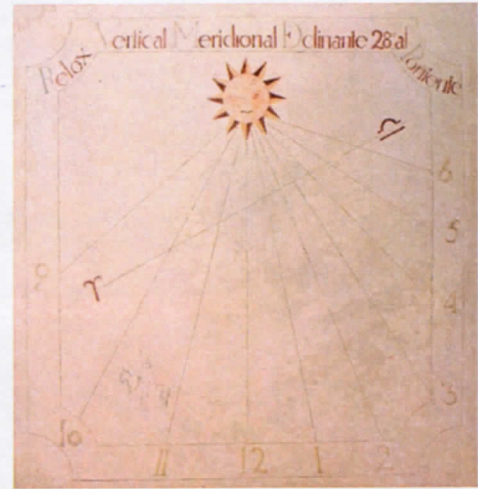 Relox Vertical Meridional Declinante 28 al Poniente
♎
6
5
9
♈
4
3
10
11 12 1 2